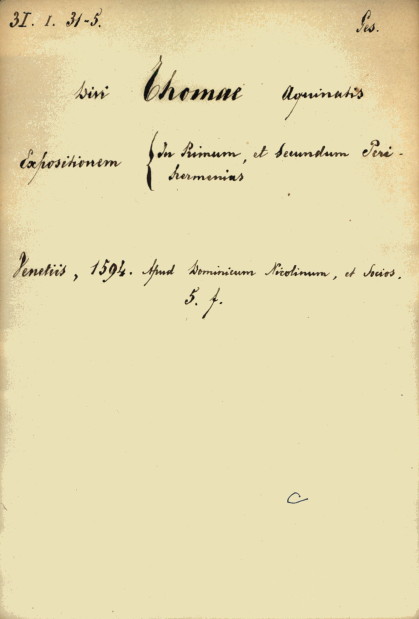 31. 1. 31-5. Ges.
Divi Thomae Aquinatis
Expositionem { In Primum, et Secundum Peri-
hermenias
Venetiis, 1594. Apud Dominicum Nicolinum, et Socios.
5. f.
C